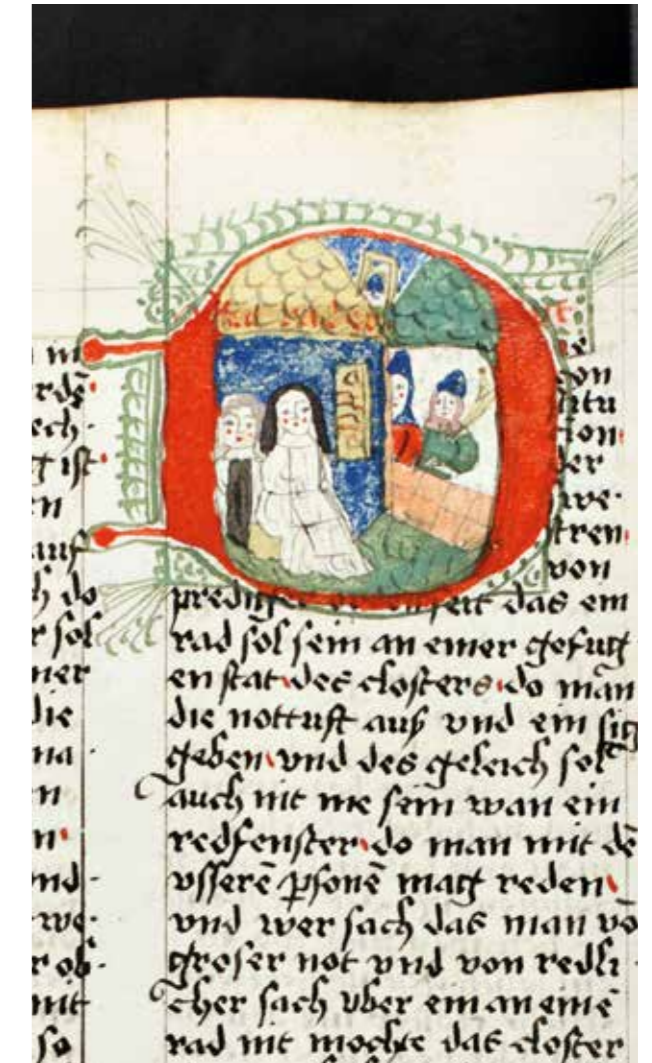 in
rdẽ
ech·
t ist·
n
auf
h do
r sol
ner
die
na·
n
n·
nd·
we·
r ob·
mit
so
ie
con
stitu
cion
der
swe·
stren
von
prediger seit das ein
rad sol sein an einer gefug
en stat des closters do man
die notturft auß vnd ein
geben vnd des geleich sol
auch nit me sein wan ein
redfenster do man mit dẽ
vsserẽ ꝑsonẽ mag reden
vnd wer sach das man võ
groser not vnd von redli
cher sach vber ein an einẽ
rad nit mochte das closter